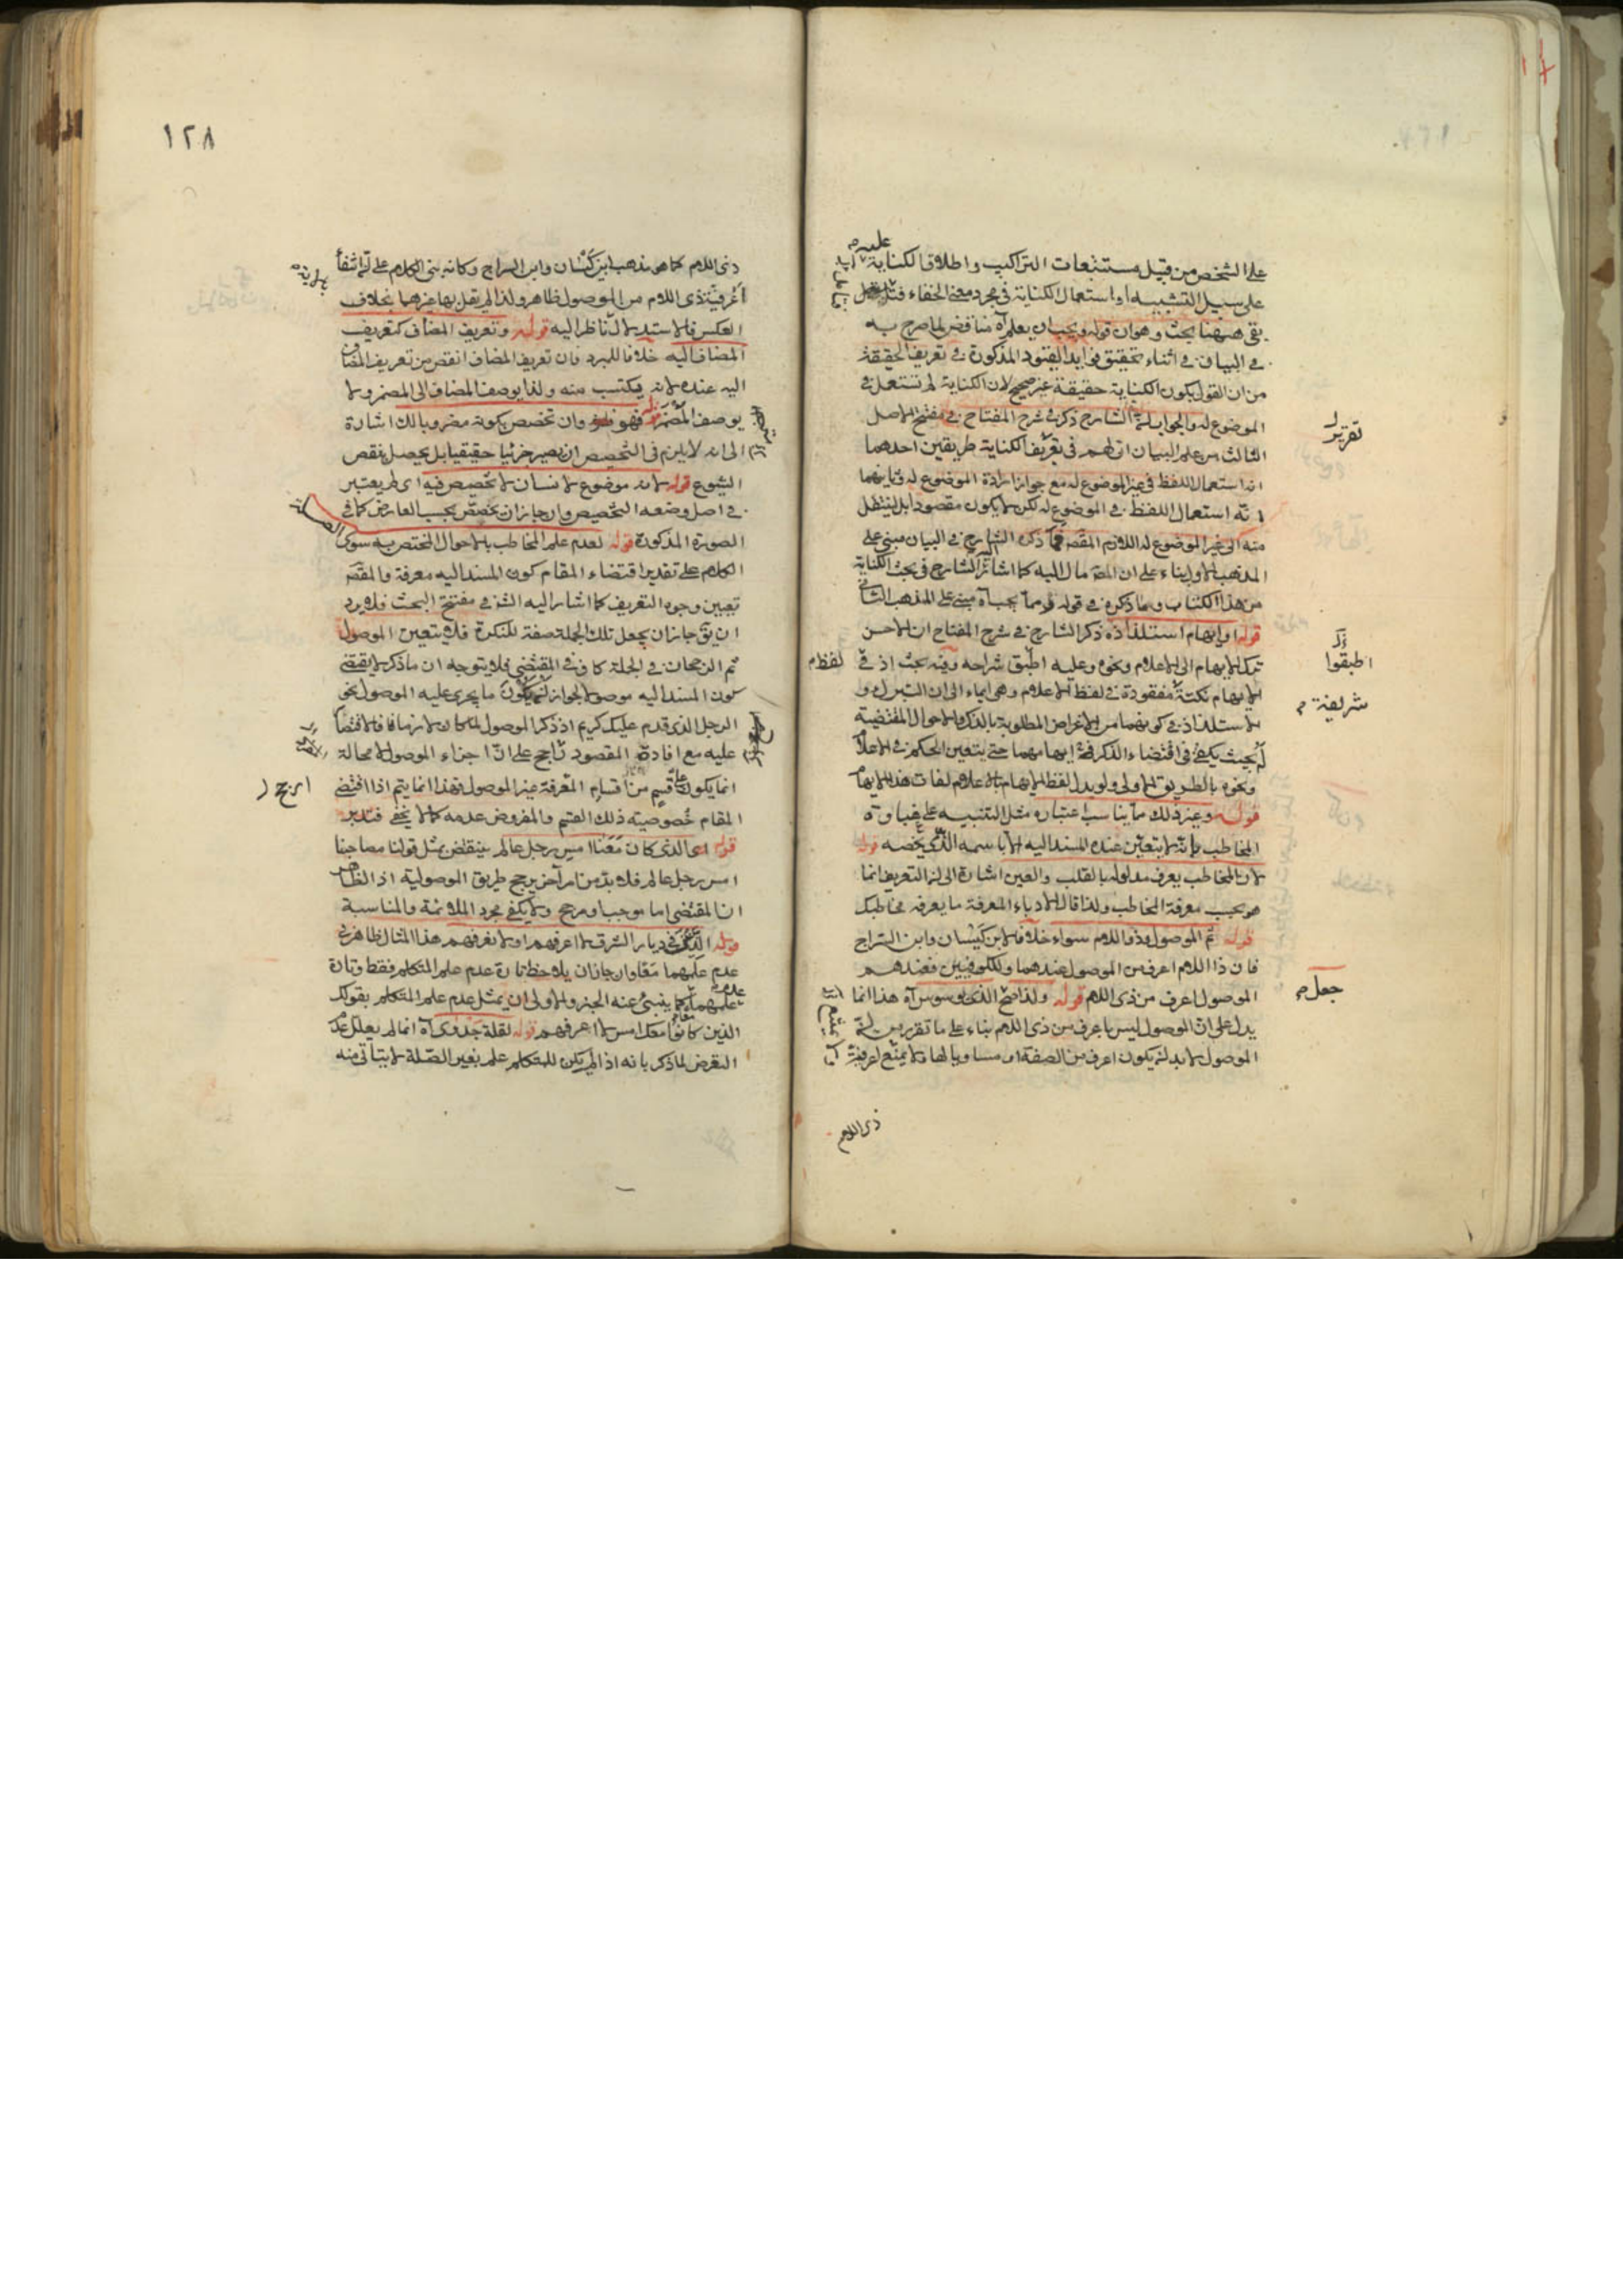 على الشخص من قبيل مستتبعات التراكيب واطلاق الكناية عليه
على سبيل التشبيه او استعمال الكناية في مجرد معنى الخفاء فتأمل
بقى ههنا بحث وهو ان قوله ويجب ان يعلم آه مناقض لما صرح به
في البيان في اثناء تحقيق فوايد القيود المذكورة في تعريف الحقيقة
من ان القول بكون الكناية حقيقة غير صحيح لان الكناية لم تستعمل في
الموضوع له والجواب ان الشارح ذكر في شرح المفتاح في مفتح الاصل
الثالث من علم البيان ان لهم في تعريف الكناية طريقين احدهما
انه استعمال اللفظ في غير الموضوع له مع جواز ارادة الموضوع له وثانيهما
انه استعمال اللفظ في الموضوع له لكن لا يكون مقصودا بل لينتقل
منه الى غير الموضوع له اللازم المقصـ فما ذكره الشارح في البيان مبنى على
المذهب الاول بناء على ان المصـ مال اليه كما اشار الشارح في بحث الكناية
من هذا الكتاب وما ذكره في قوله ومما يجب آه مبنى على المذهب الثانى
قوله او ايهام استلذاذه ذكر الشارح في شرح المفتاح ان الاحسن
ترك الايهام الى الاعلام ونحوه وعليه اطبق شراحه وفيه بحث اذ في لفظ
الايهام نكتة مفقودة في لفظ الاعلام وهى ايماء الى ان التبرك و
الاستلذاذ في كونهما من الاغراض المطلوبة بالذكر والاحوال المقتضية
له بحيث يكفى في اقتضاء الذكر ايهامهما حتى يتعين الحكم في الاعلام
ونحوه بالطريق الاولى ولو بدل لفظ الايهام بالاعلام لفات هذا الايهام
قوله وغير ذلك مما يناسب اعتباره مثل التنبيه على غباوة
المخاطب بانه لا يتعين عنده المسند اليه الا باسمه الذى يخصه قوله
لان المخاطب يعرف مدلوله بالقلب والعين اشارة الى ان التعريف انما
هو بحسب معرفة المخاطب ولذا قال الادباء المعرفة ما يعرفه مخاطبك
قوله ثم الموصول وذو اللام سواء خلافا لابن كيسان وابن السراج
فان ذا اللام اعرف من الموصول عندهما وللكوفيين فعندهم
الموصول اعرف من ذى اللام قوله ولذا صح الذى يوسوس آه هذا انما
يدل على ان الموصول ليس باعرف من ذى اللام بناء على ما تقرر من ان
الموصول لابد ان يكون اعرف من الصفة او مساويا لها ولا يمنع اعرفية
ذى اللام
تقرير
اطبقوا
شريفة
جعل
١٢٨
ذى اللام كما هو مذهب ابن كيسان وابن السراج وكانه بنى الكلام على ان انتفاء
اعرفية ذى اللام من الموصول ظاهر ولذا لم يقل بها غيرهما بخلاف
العكس فالاستدلال ناظر اليه قوله وتعريف المضاف كتعريف
المضاف اليه خلافا للمبرد فان تعريف المضاف انقص من تعريف المضاف
اليه عنده لانه يكتسب منه ولذا يوصف المضاف الى المضمر ولا
يوصف المضمر فهو وان تخصص بكونه مضروبا لك اشارة
الى انه لا يلزم في التخصيص ان يصير جزئيا حقيقيا بل يحصل بنقص
الشيوع قوله لانه موضوع لانسان لا تخصيص فيه اى لم يعتبر
في اصل وضعه التخصيص وان جاز ان يخصص بحسب العارض كما في
الصورة المذكورة قوله لعدم علم المخاطب بالاحوال المختصة به سوى
الكلام على تقدير اقتضاء المقام كون المسند اليه معرفة والمقصـ
تعيين وجوه التعريف كما اشار اليه الشـ في مفتتح البحث فلا يرد
ان يق جاز ان يجعل تلك الجملة صفة للنكرة فلا يتعين الموصول
ثم الرجحان في الجملة كاف في المقتضى فلا يتوجه ان ما ذكر لا يقتضى
كون المسند اليه موصولا لجواز ان يكون ما يجرى عليه الموصول نحو
الرجل الذى قدم عليك كريم اذ ذكر الموصول لما كان لازما فالاقتصار
عليه مع افادة المقصود راجح على ان اجزاء الموصول لا محالة
انما يكون على قسم من اقسام المعرفة غير الموصول فهذا انما يتم اذا اقتضى
المقام خصوصية ذلك القسم والمفروض عدمه كما لا يخفى فتدبر
قوله اى الذى كان معنا امس رجل عالم ينتقض بمثل قولنا مصاحبنا
امس رجل عالم فلا بد من امر آخر يرجح طريق الموصولية اذ الظاهر
ان المقتضى اما موجب او مرجح ولا يكفى مجرد الملائمة والمناسبة
قوله الذين في ديار الشرق لا اعرفهم او لا نعرفهم هذا المثال ظاهر في
عدم علمهما معا وان جاز ان يلاحظ تارة عدم علم المتكلم فقط وتارة
علمهما كما ينبئ عنه الخبر والاولى ان يمثل عدم علم المتكلم بقولك
الذين كانوا معك امس لا اعرفهم قوله لقلة جدوى آه انما لم يعلل عدم
التعرض لما ذكر بانه اذا لم يكن للمتكلم علم بغير الصلة لا يتأتى منه